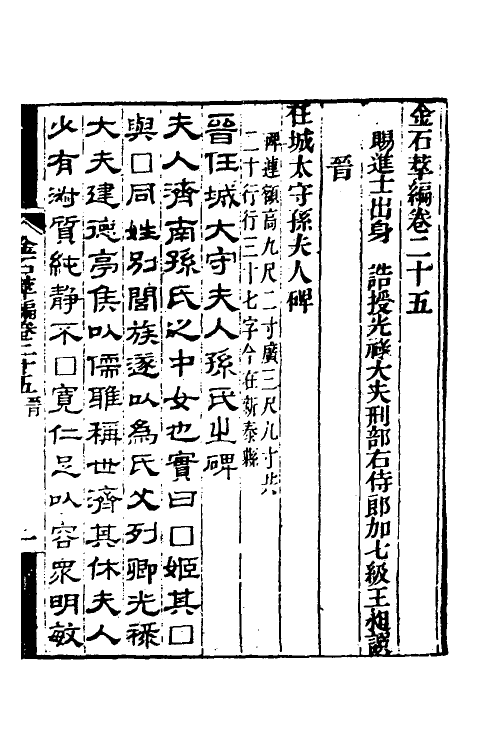 金石萃編卷二十五
賜進士出身 誥授光祿大夫刑部右侍郎加七級王昶譔
晉
任城太守孫夫人碑
碑連額高九尺二寸廣三尺九寸共
二十行行三十七字今在新泰縣
晉任城大守夫人孫氏之碑
夫人濟南孫氏之中女也實曰□姬其□
與□同姓別閭族遂以為氏父列卿光祿
大夫建德亭侯以儒雅稱世濟其休夫人
少有淑質純靜不□寬仁足以容眾明敏
金石萃編卷二十五 晉
一